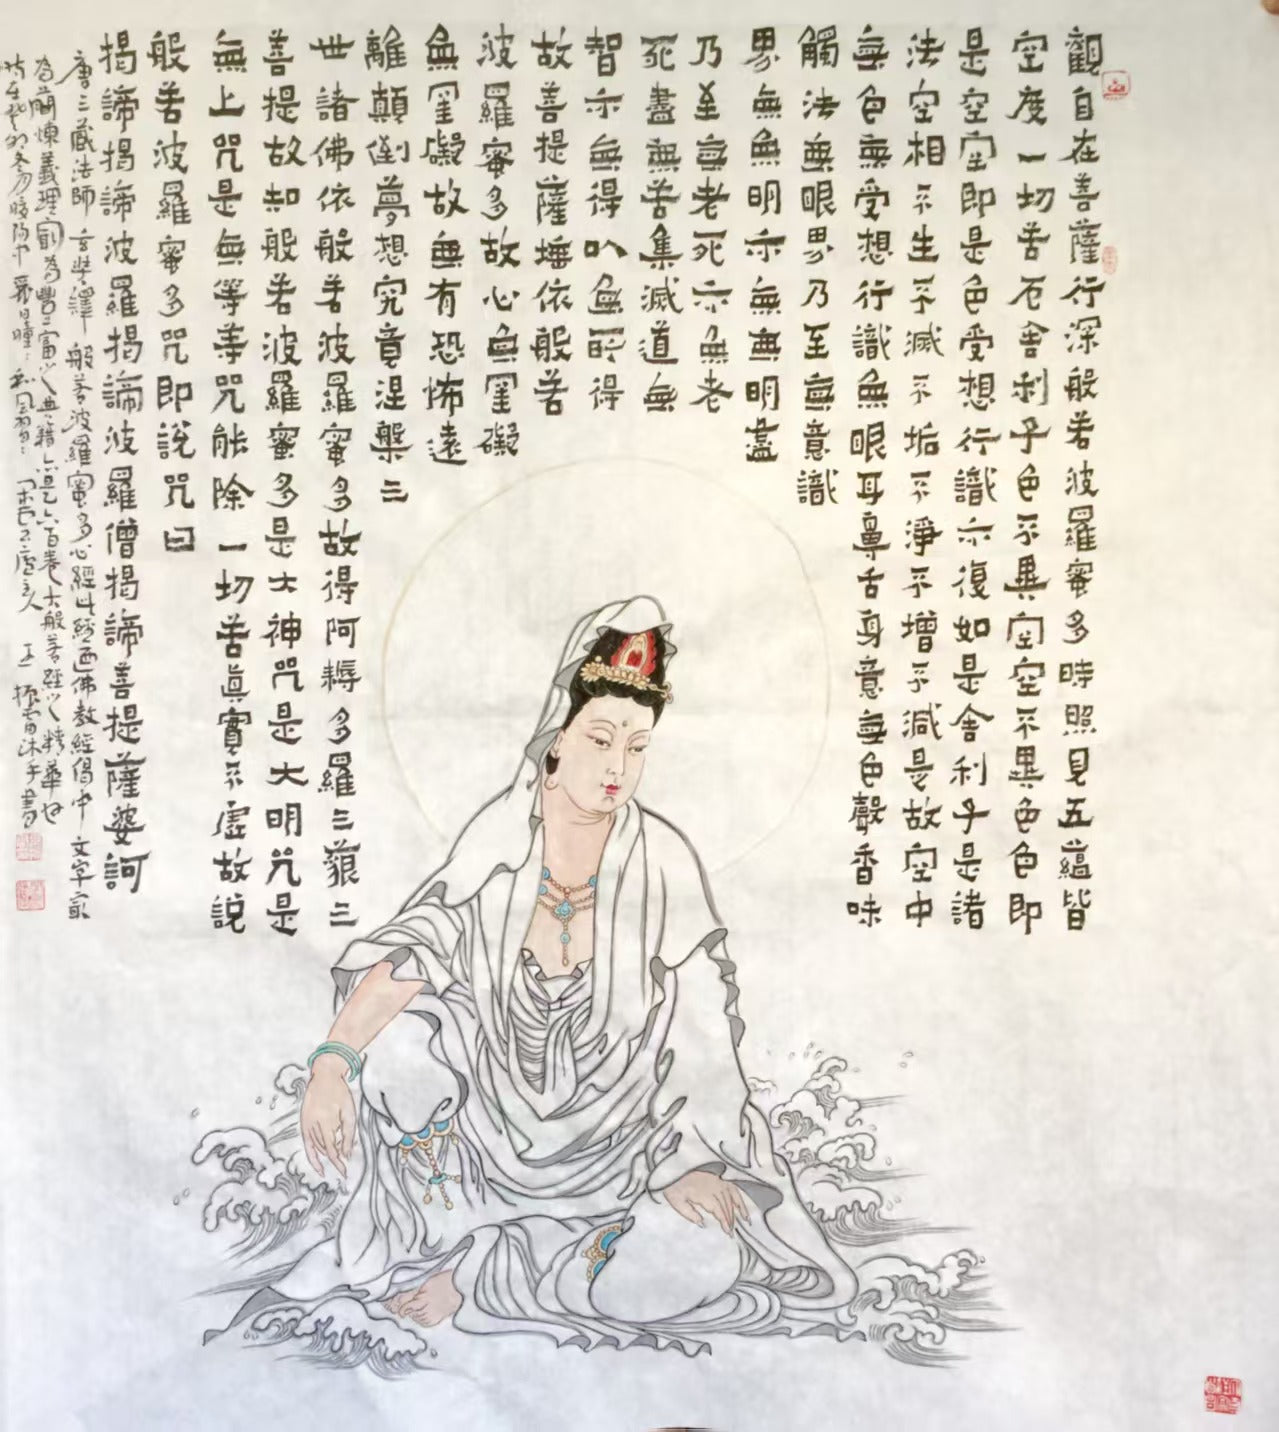 觀自在菩薩行深般若波羅蜜多時照見五蘊皆
空度一切苦厄舍利子色不異空空不異色色即
是空空即是色受想行識亦復如是舍利子是諸
法空相不生不滅不垢不淨不增不減是故空中
無色無受想行識無眼耳鼻舌身意無色聲香味
觸法無眼界乃至無意識
界無無明亦無無明盡
乃至無老死亦無老
死盡無苦集滅道無
智亦無得以無所得
故菩提薩埵依般若
波羅蜜多故心無罣礙
無罣礙故無有恐怖遠
離顛倒夢想究竟涅槃三
世諸佛依般若波羅蜜多故得阿耨多羅三藐三
菩提故知般若波羅蜜多是大神咒是大明咒是
無上咒是無等等咒能除一切苦真實不虛故說
般若波羅蜜多咒即說咒曰
揭諦揭諦波羅揭諦波羅僧揭諦菩提薩婆訶
唐三藏法師玄奘譯般若波羅蜜多心經此經乃佛教經偈中文字最
為簡煉義理最為豐富之典籍是六百卷大般若經之精華也